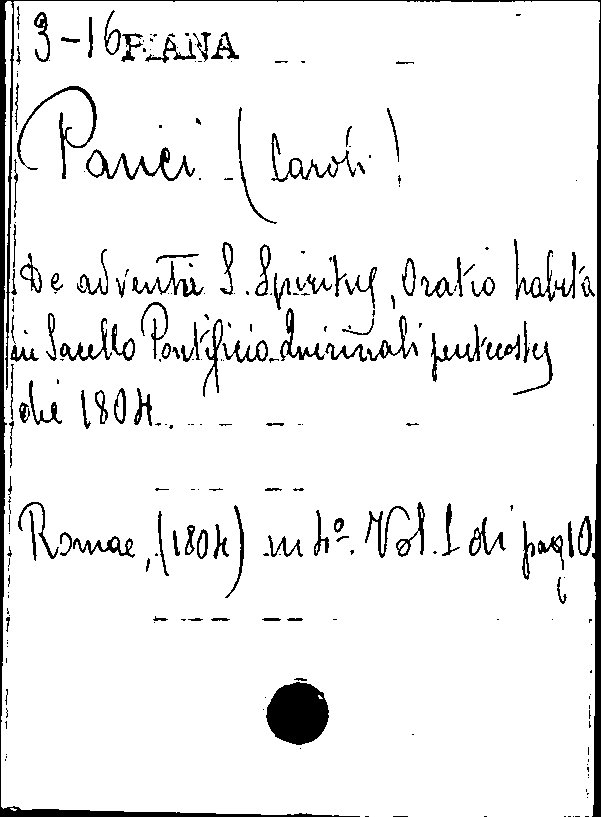 3-16 PIANA
Panici (Caroli)
De adventu S. Spiritus, Oratio habita
in Sacello Pontificio Quirinali pentecostes
die 1804.
Romae, (1804) in 4º. Vol. 1 di pag 10.